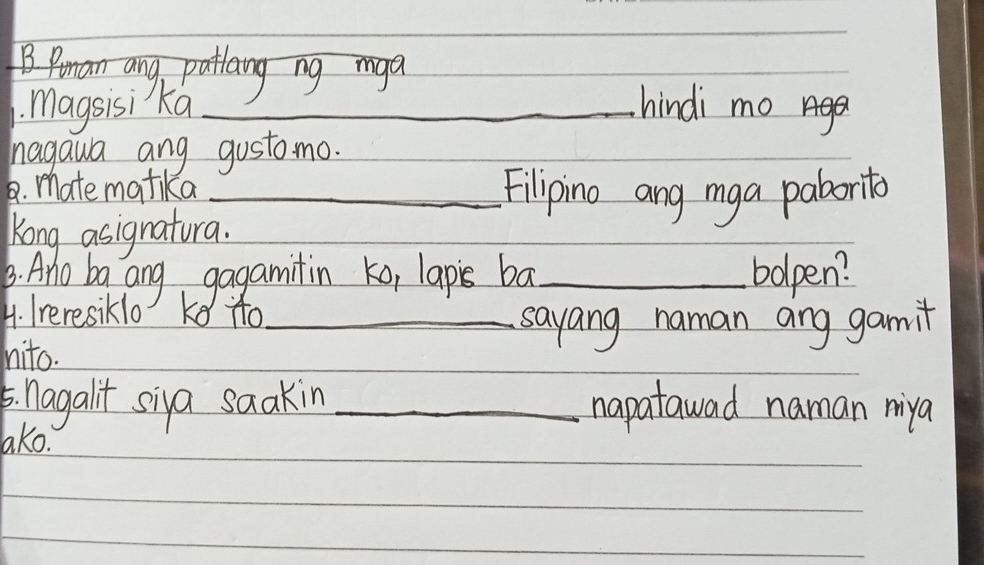 B. Punan ang patlang ng mga
1. Magsisi ka ____________ hindi mo nga
nagawa ang gusto mo.
2. matematika ____________ Filipino ang mga paborito
kong asignatura.
3. Ano ba ang gagamitin ko, lapis ba ____________ bolpen?
4. Ireresiklo ko ito ____________ sayang naman ang gamit
nito.
5. nagalit siya saakin ____________ napatawad naman niya
ako.